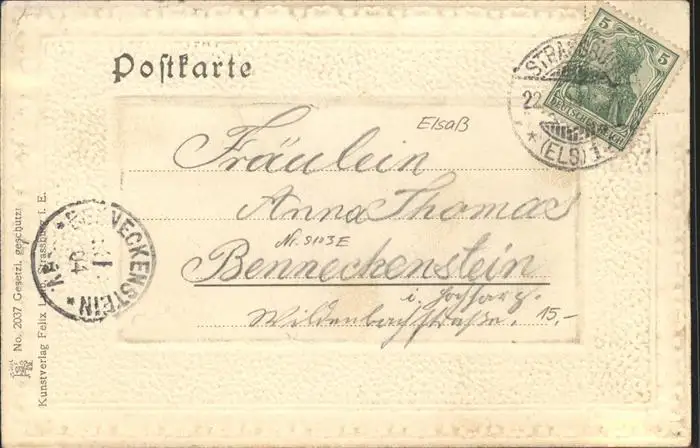 Postkarte
5 5
DEUTSCHES REICH
STRASSBURG
22.
* (ELS) 1 *
Elsaß
Fräulein
Anna Thomas
Nr. 9103E
Benneckenstein
i.
Wildenbachstraße. 15,-
BENNECKENSTEIN *
04
No. 2037 Gesetzl. geschützt
Kunstverlag Felix Luib, Strassburg i. E.